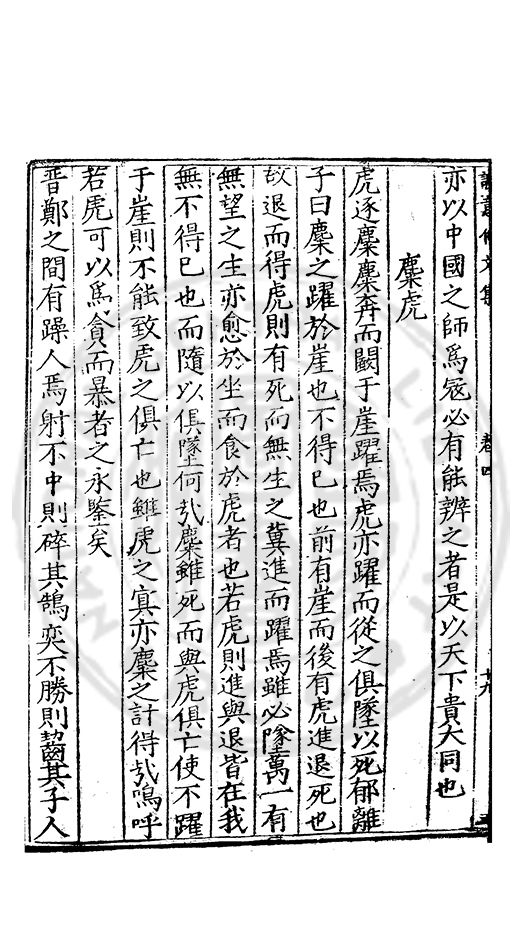 誠意伯文集
卷四
十九
亦以中國之師爲冦必有能辨之者是以天下貴大同也
麋虎
虎逐麋麋奔而闞于崖躍焉虎亦躍而從之俱墜以死郁離
子曰麋之躍於崖也不得已也前有崖而後有虎進退死也
故退而得虎則有死而無生之冀進而躍焉雖必墜萬一有
無望之生亦愈於坐而食於虎者也若虎則進與退皆在我
無不得已也而隨以俱墜何㢤麋雖死而與虎俱亡使不躍
于崖則不能致虎之俱亡也雖虎之冥亦麋之計得㢤嗚呼
若虎可以爲貪而暴者之永鑒矣
晋鄭之間有躁人焉射不中則碎其鵠奕不勝則齧其子人